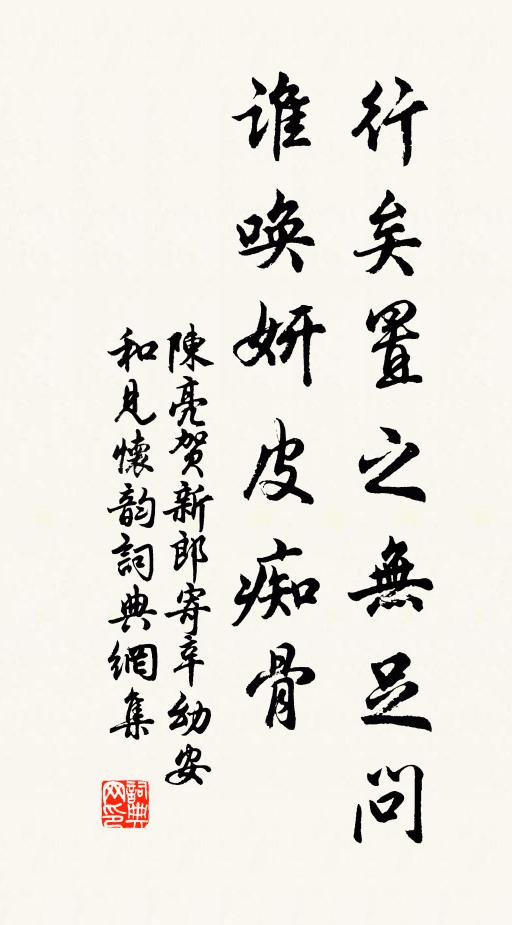 行矣置之無足問
誰唤妍皮痴骨
陳亮贺新郎寄辛幼安
和見懷韵詞典網集
詞典网印